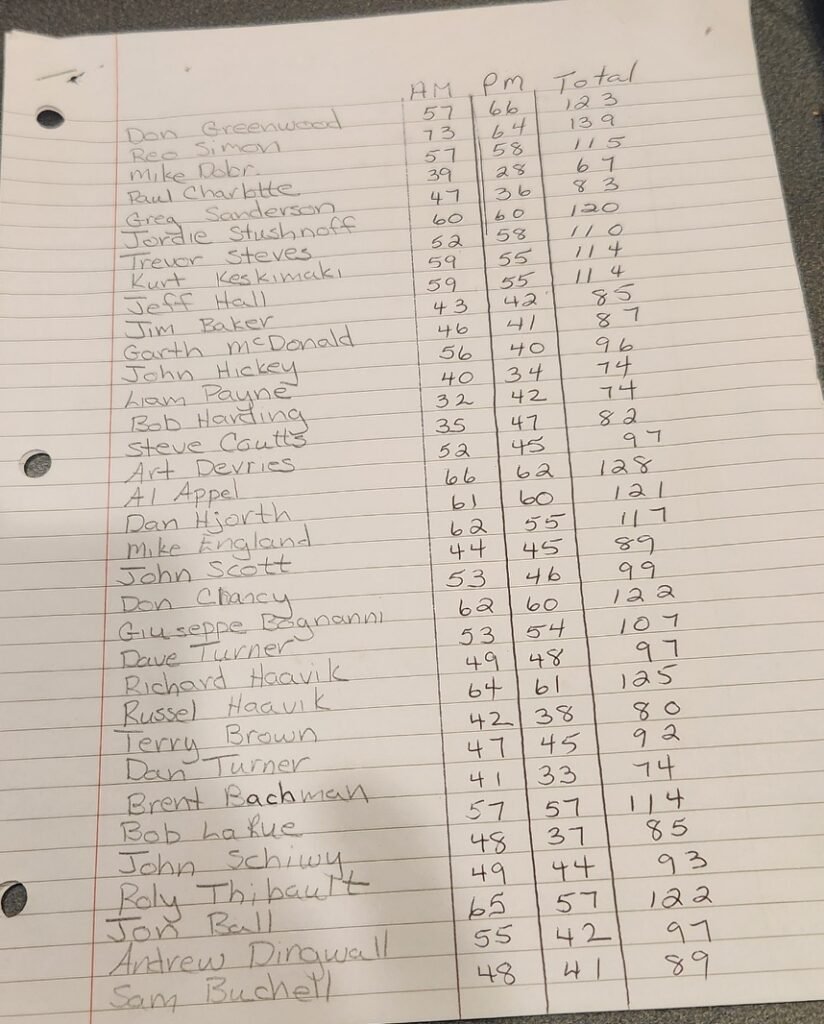 AM PM Total
Don Greenwood 57 66 123
Reo Simon 73 64 139
Mike Dobr. 57 58 115
Paul Charbtte 39 28 67
Greg Sanderson 47 36 83
Jordie Stushnoff 60 60 120
Trevor Steves 52 58 110
Kurt Keskimaki 59 55 114
Jeff Hall 59 55 114
Jim Baker 43 42 85
Garth McDonald 46 41 87
John Hickey 56 40 96
Liam Payne 40 34 74
Bob Harding 32 42 74
Steve Coutts 35 47 82
Art Devries 52 45 97
Al Appel 66 62 128
Dan Hjorth 61 60 121
Mike England 62 55 117
John Scott 44 45 89
Don Chancy 53 46 99
Giuseppe Bagnanni 62 60 122
Dave Turner 53 54 107
Richard Haavik 49 48 97
Russel Haavik 64 61 125
Terry Brown 42 38 80
Dan Turner 47 45 92
Brent Bachman 41 33 74
Bob LaRue 57 57 114
John Schiwy 48 37 85
Roly Thibault 49 44 93
Jon Ball 65 57 122
Andrew Dingwall 55 42 97
Sam Buchell 48 41 89